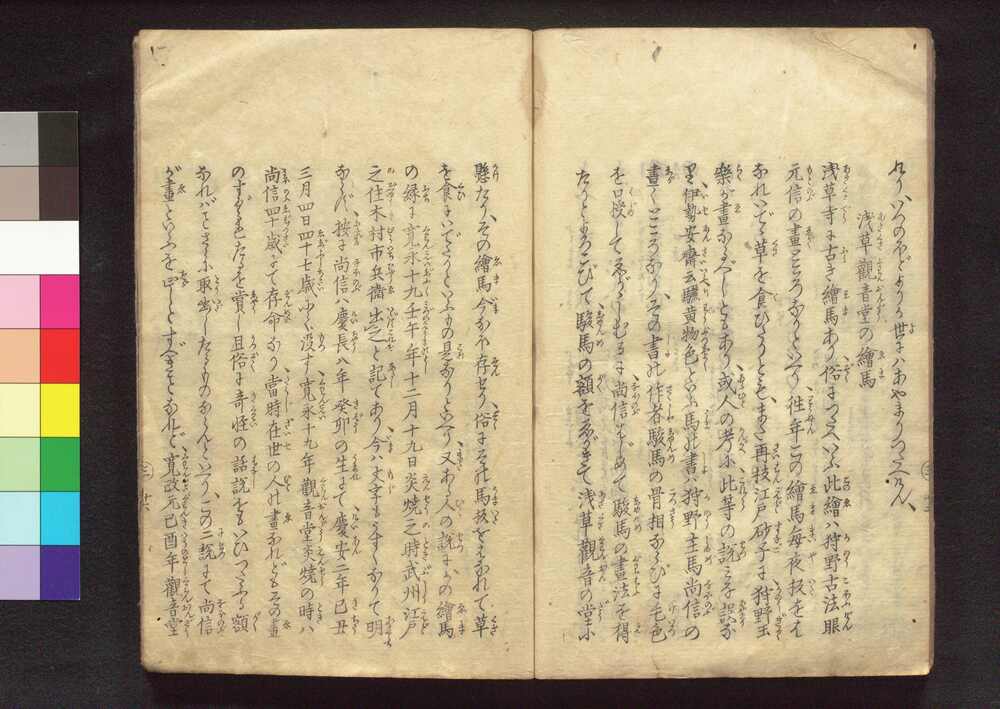 れり、いつのほどよりか世にはあやまりつたへけん、
浅草觀音堂の繪馬
浅草寺に古き繪馬あり、俗につたへいふ此繪ハ狩野古法眼
元信の畫ところなりといへり、徃年この繪馬毎夜板をは
なれいでゝ草を食ひしうとも、また再板江戸砂子に狩野主
樂が畫なるべしともあり、或人の考に、此等の説みな誤な
り、伊勢安斎云驪黄物色といふ馬の書ハ狩野主馬尚信の
畫くところなり、その書の作者駿馬の骨相ならびに毛色
を口授してゑがゝしむるに、尚信はじめて駿馬の畫法を得
たりとよろこびて、駿馬の額をゑがきて、浅草觀音の堂に
懸たり、その繪馬今なほ存せり、俗にその馬板をはなれて草
を食にいでたりといふもの是なりといへり、又ある人の説に、かの繪馬
の縁に寛永十九壬午年十二月十九日炎焼之時武州江戸
之住木村市兵衛出之と記てあり、今ハ文字もさだかならで明
ならず、按に尚信ハ慶長八年癸卯の生にて、慶安二年己丑
三月四日四十七歳にて没す、寛永十九年觀音堂炎焼の時ハ
尚信四十歳にて存命なり、當時在世の人の畫なれどもその畫
のすぐれたるを賞し、且俗に奇怪の話説をもいひつたふる額
なればとさらに取出したるものならんといへり、この二説にて尚信
が畫といふを正しとすべきことなれど、寛政元己酉年觀音堂